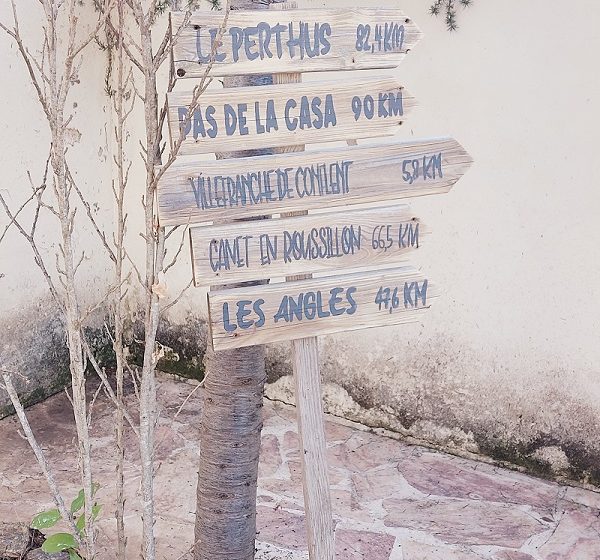 LE PERTHUS 82,4 KM
PAS DE LA CASA 90 KM
VILLEFRANCHE DE CONFLENT 5,8 KM
CANET EN ROUSSILLON 66,5 KM
LES ANGLES 47,6 KM